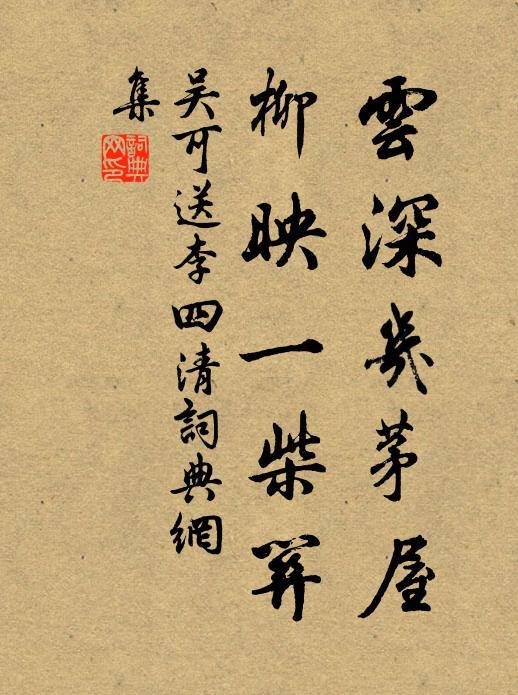 雲深幾茅屋
柳映一柴關
吳可送李四清詞典網
集
詞典
網印